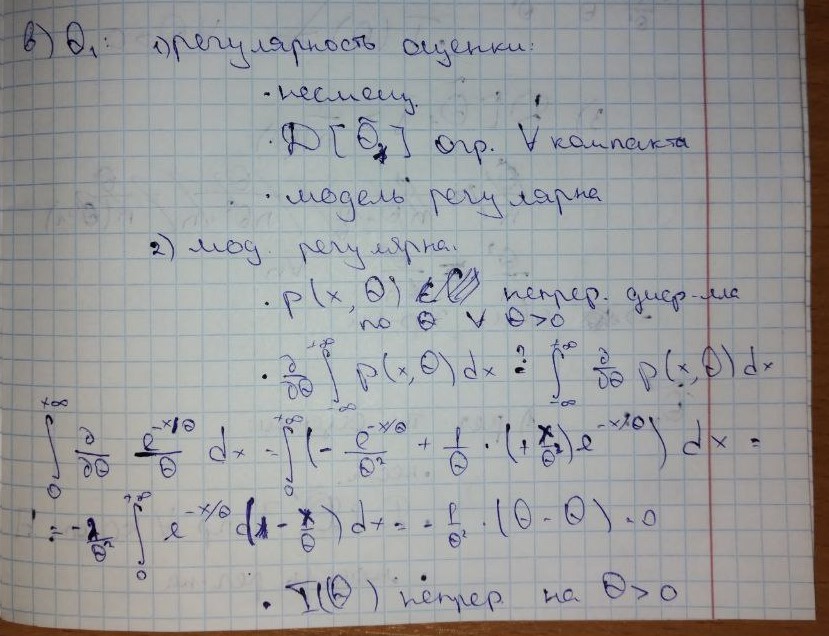 в) Θ₁: 1) регулярность оценки:
· несмещ.
· D[Θ̃₁] огр. ∀ компакта
· модель регулярна
2) мод. регулярна.
· p(x, Θ) непрер. диф-ма
по Θ ∀ Θ>0
· ∂/∂Θ ∫_{-∞}^{+∞} p(x, Θ) dx ≟ ∫_{-∞}^{+∞} ∂/∂Θ p(x, Θ) dx
∫_0^{+∞} ∂/∂Θ e^{-x/Θ}/Θ dx = ∫_0^{+∞} (- e^{-x/Θ}/Θ² + 1/Θ · (+ x/Θ²) e^{-x/Θ}) dx =
= - 1/Θ² ∫_0^{+∞} e^{-x/Θ} (1 - x/Θ) dx = - 1/Θ² · (Θ - Θ) = 0
· I(Θ) непрер. на Θ>0